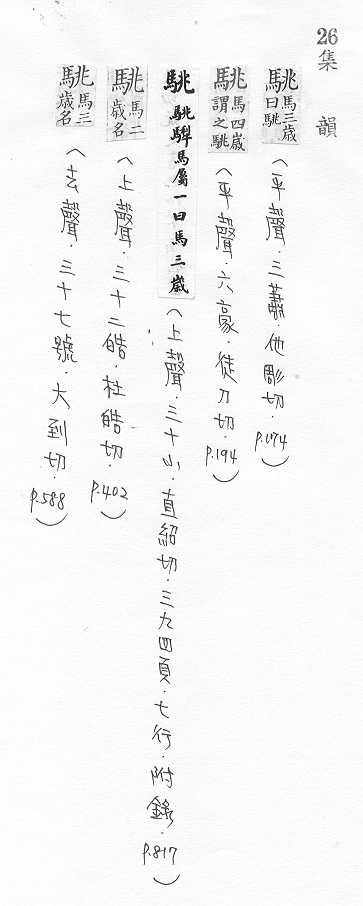 26
集韻
駣 馬三歲曰駣（平聲．三蕭．他彫切．p.174）
駣 馬四歲謂之駣（平聲．六豪．徒刀切．p.194）
駣 駣騨馬屬一曰馬三歲（上聲．三十小．直紹切．三九四頁．七行．附錄．p.817）
駣 馬二歲名（上聲．三十二皓．杜皓切．p.402）
駣 馬三歲名（去聲．三十七號．大到切．p.588）